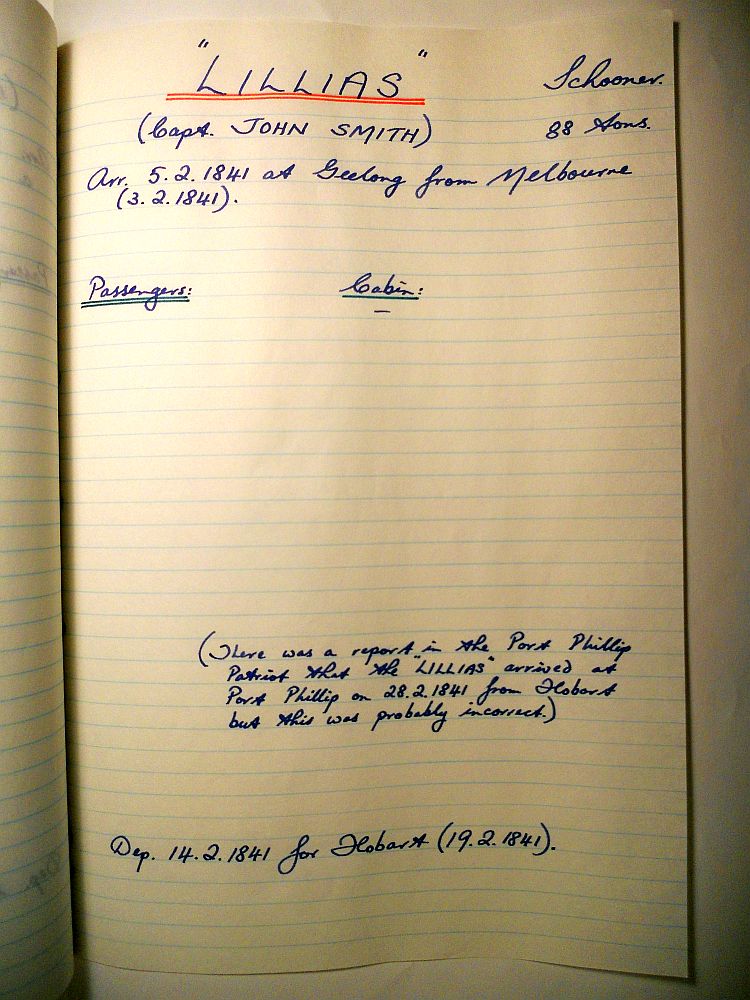 "LILLIAS" Schooner.
(Capt. JOHN SMITH) 88 tons.
Arr. 5.2.1841 at Geelong from Melbourne
(3.2.1841).
Passengers: Cabin:
—
(There was a report in the Port Phillip
Patriot that the "LILLIAS" arrived at
Port Phillip on 28.2.1841 from Hobart
but this was probably incorrect.)
Dep. 14.2.1841 for Hobart (19.2.1841).